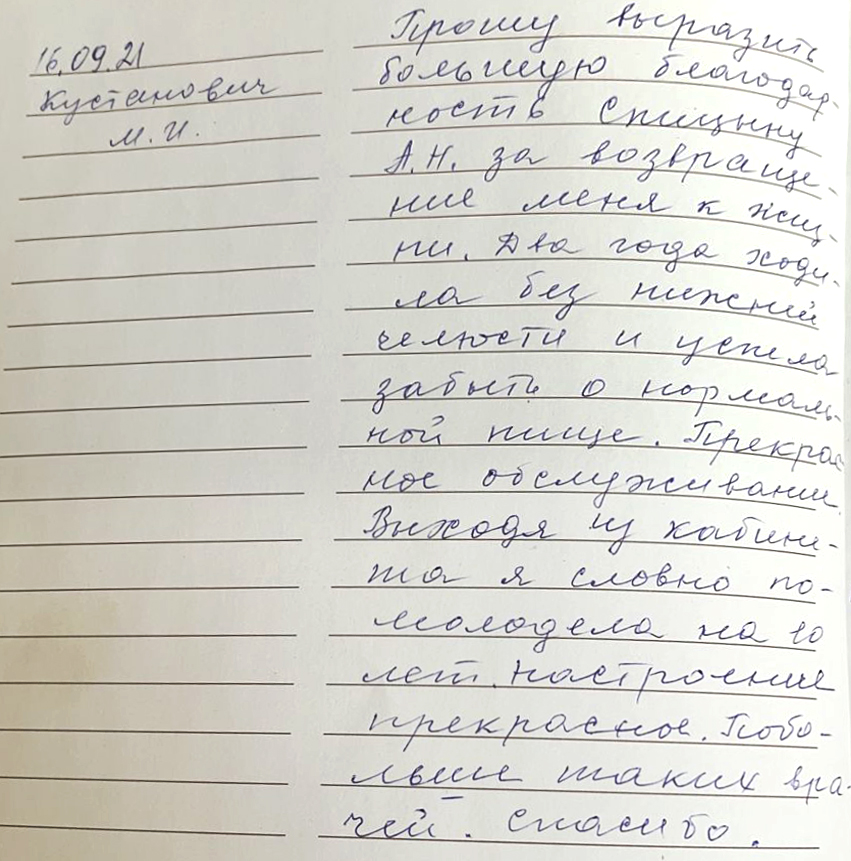 16.09.21
Кустанович
М.И.
Прошу выразить
большую благодар-
ность Спицыну
А.Н. за возвраще-
ние меня к жиз-
ни. Два года ходи-
ла без нижней
челюсти и успела
забыть о нормаль-
ной пище. Прекрас
ное обслуживание.
Выходя из кабине-
та я словно по-
молодела на 10
лет. настроение
прекрасное. Побо-
льше таких вра-
чей. Спасибо.